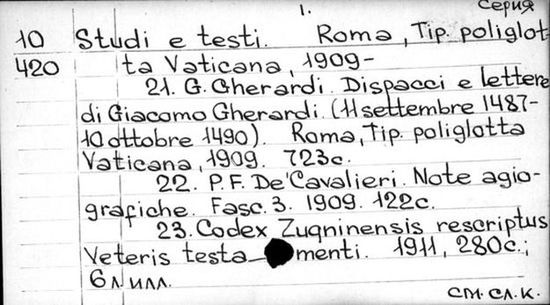 1. Серия
10 Studi e testi. Roma, Tip. poliglot-
420 ta Vaticana, 1909-
21. G. Gherardi. Dispacci e lettere
di Giacomo Gherardi. (11 settembre 1487-
10 ottobre 1490). Roma, Tip. poliglotta
Vaticana, 1909. 723с.
22. P.F. De'Cavalieri. Note agio-
grafiche. Fasc. 3. 1909. 122с.
23. Codex Zuqninensis rescriptus
Veteris testa-menti. 1911, 280с.;
6 л. илл.
см. сл. к.